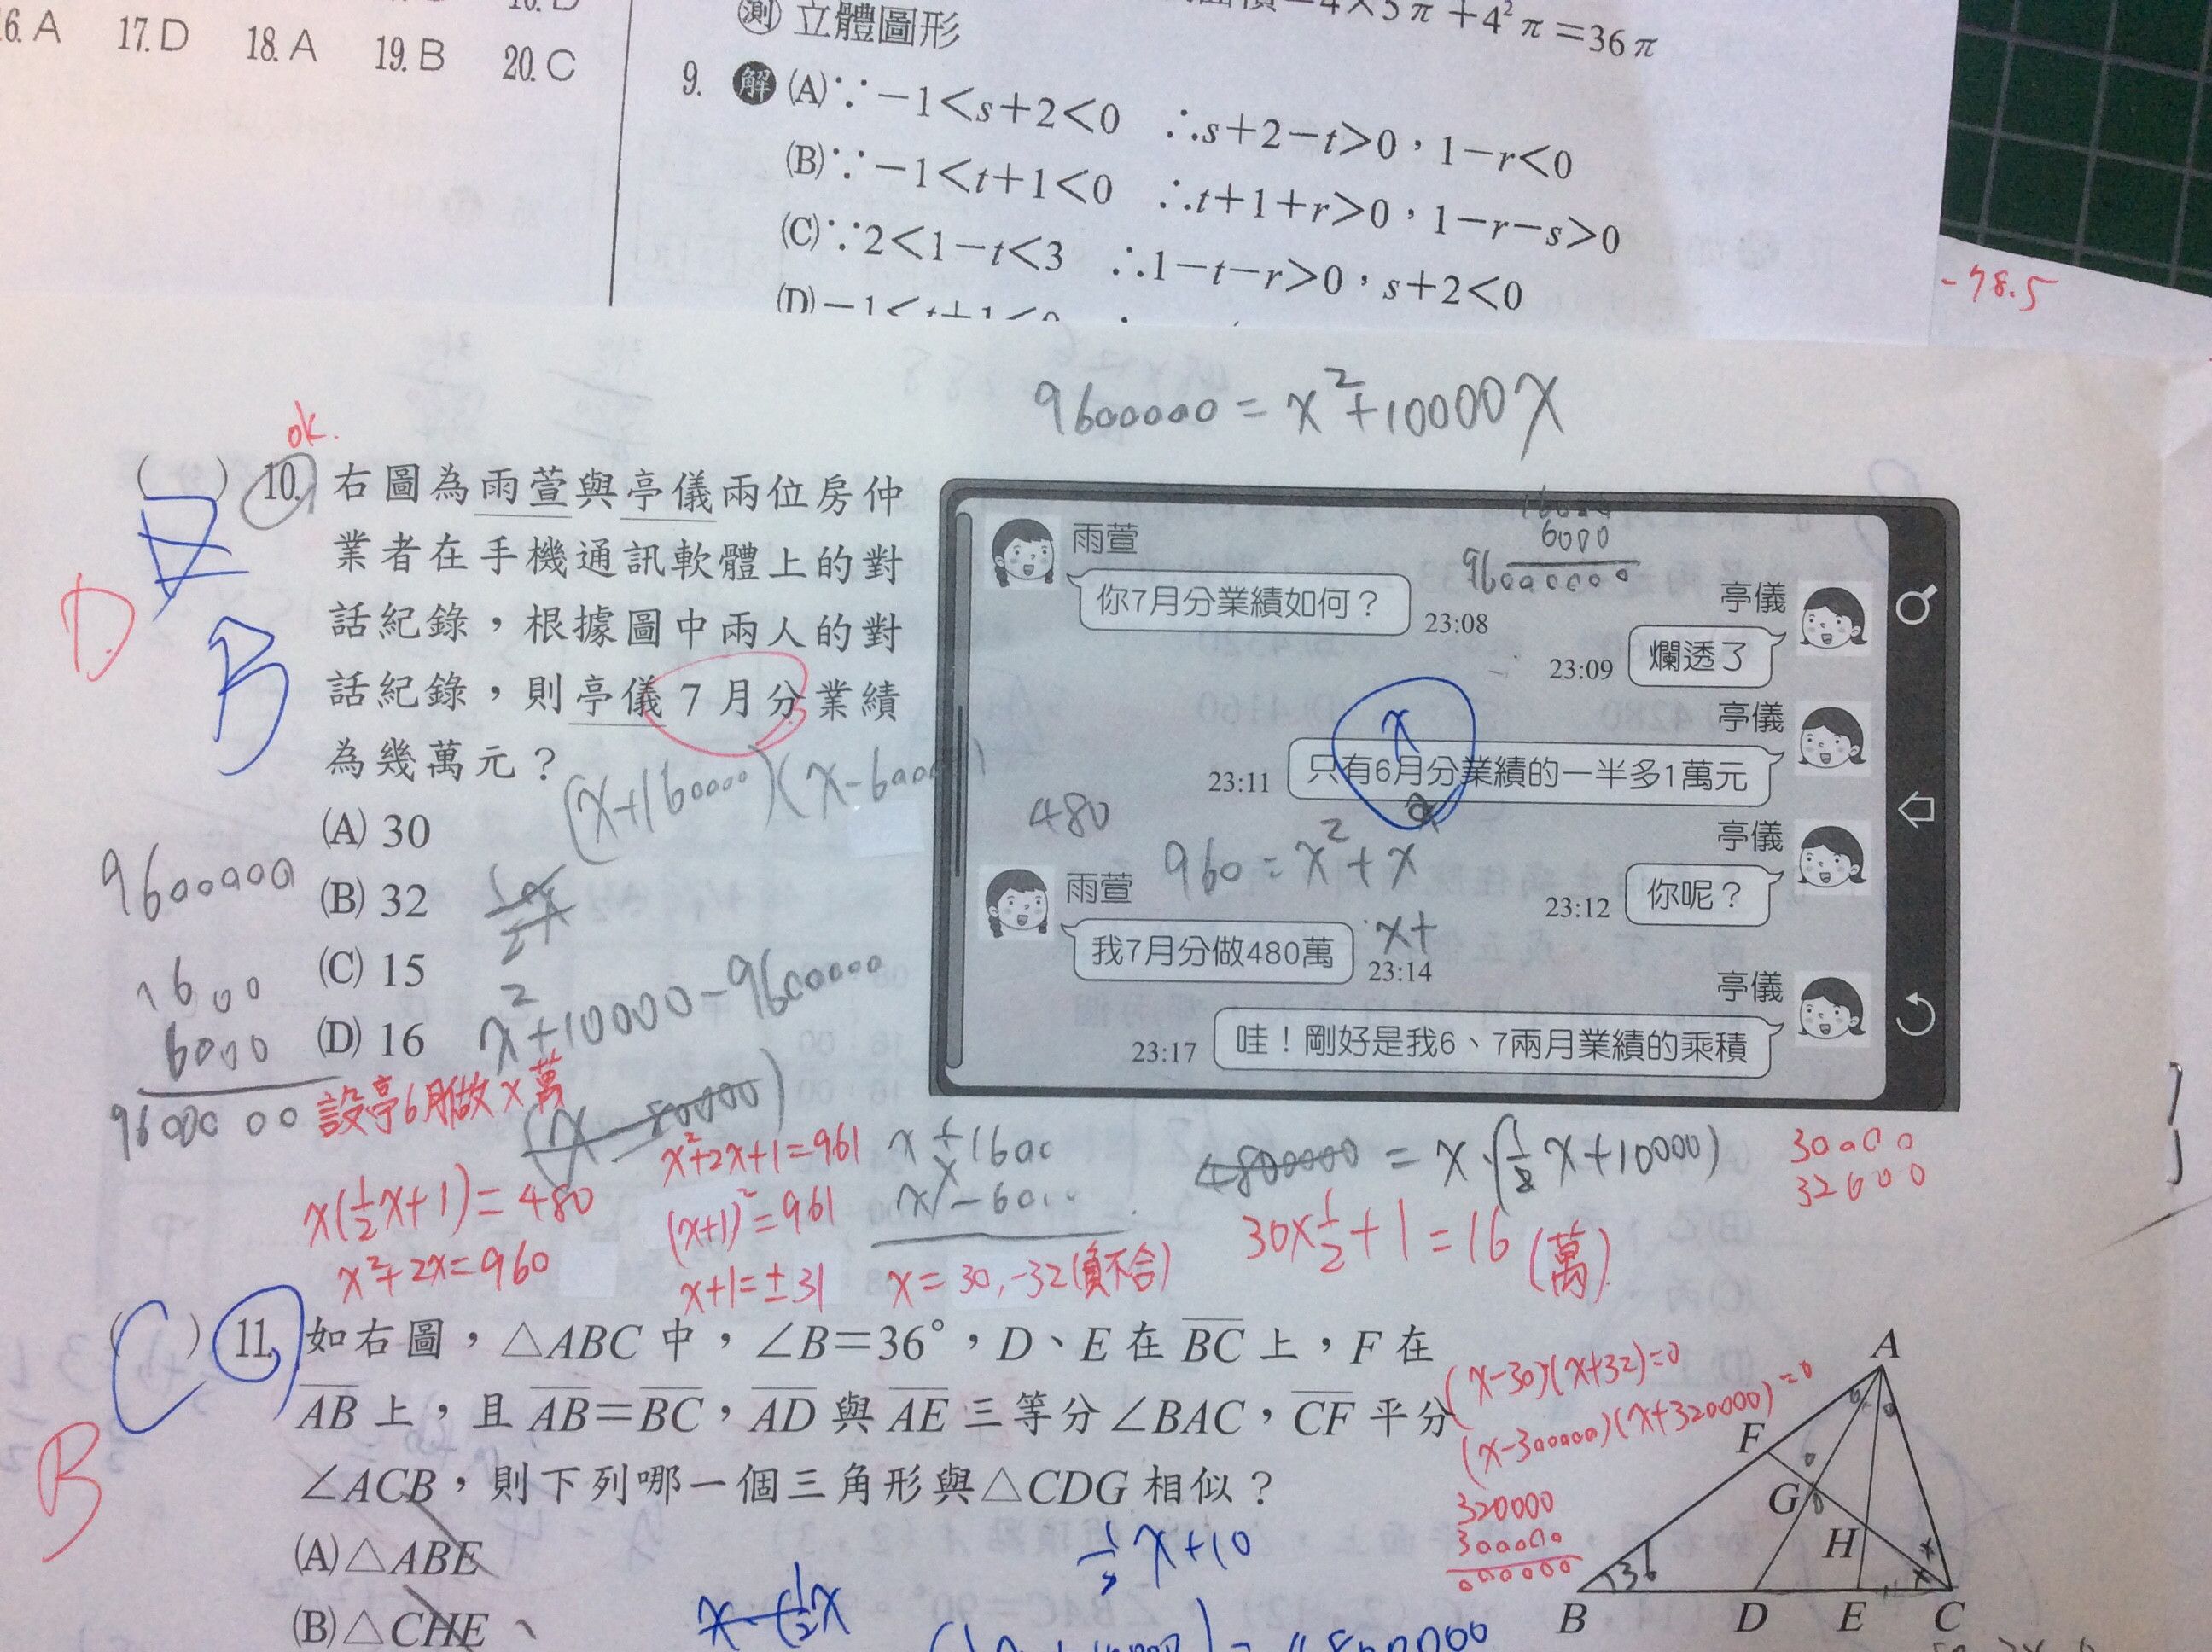 16. A 17. D 18. A 19. B 20. C
測 立體圖形
=4×5π+4²π=36π
9. 解 (A)∵−1<s+2<0 ∴s+2−t>0，1−r<0
(B)∵−1<t+1<0 ∴t+1+r>0，1−r−s>0
(C)∵2<1−t<3 ∴1−t−r>0，s+2<0
(D)−1<t+1<0
-78.5
9600000 = x²+10000x
ok.
( ) 10. 右圖為雨萱與亭儀兩位房仲
業者在手機通訊軟體上的對
話紀錄，根據圖中兩人的對
話紀錄，則亭儀 7 月分業績
為幾萬元？
D
B
(A) 30
(B) 32
(C) 15
(D) 16
雨萱
你7月分業績如何？ 23:08
亭儀
23:09 爛透了
亭儀
23:11 只有6月分業績的一半多1萬元
亭儀
23:12 你呢？
雨萱
我7月分做480萬 23:14
亭儀
23:17 哇！剛好是我6、7兩月業績的乘積
16000
6000
96000000
x
480
960 = x²+x
x+
9600000
1600
6000
9600000
x²+10000-9600000
設亭6月做x萬
x(1/2x+1)=480
x²+2x=960
x²+2x+1=961
(x+1)²=961
x+1=±31
x+1600
x-6000
x=30,-32(負不合)
4800000 = x·(1/2x+10000)
30×1/2+1=16(萬)
30000
32000
( C ) 11. 如右圖，△ABC 中，∠B=36°，D、E 在 BC 上，F 在
AB 上，且 AB=BC，AD 與 AE 三等分∠BAC，CF 平分
∠ACB，則下列哪一個三角形與△CDG 相似？
B
(A)△ABE
(B)△CHE
(x-30)(x+32)=0
(x-300000)(x+320000)=0
320000
300000
000000
A
F
G
H
36
B D E C
1/2x+10
x-(1/2x